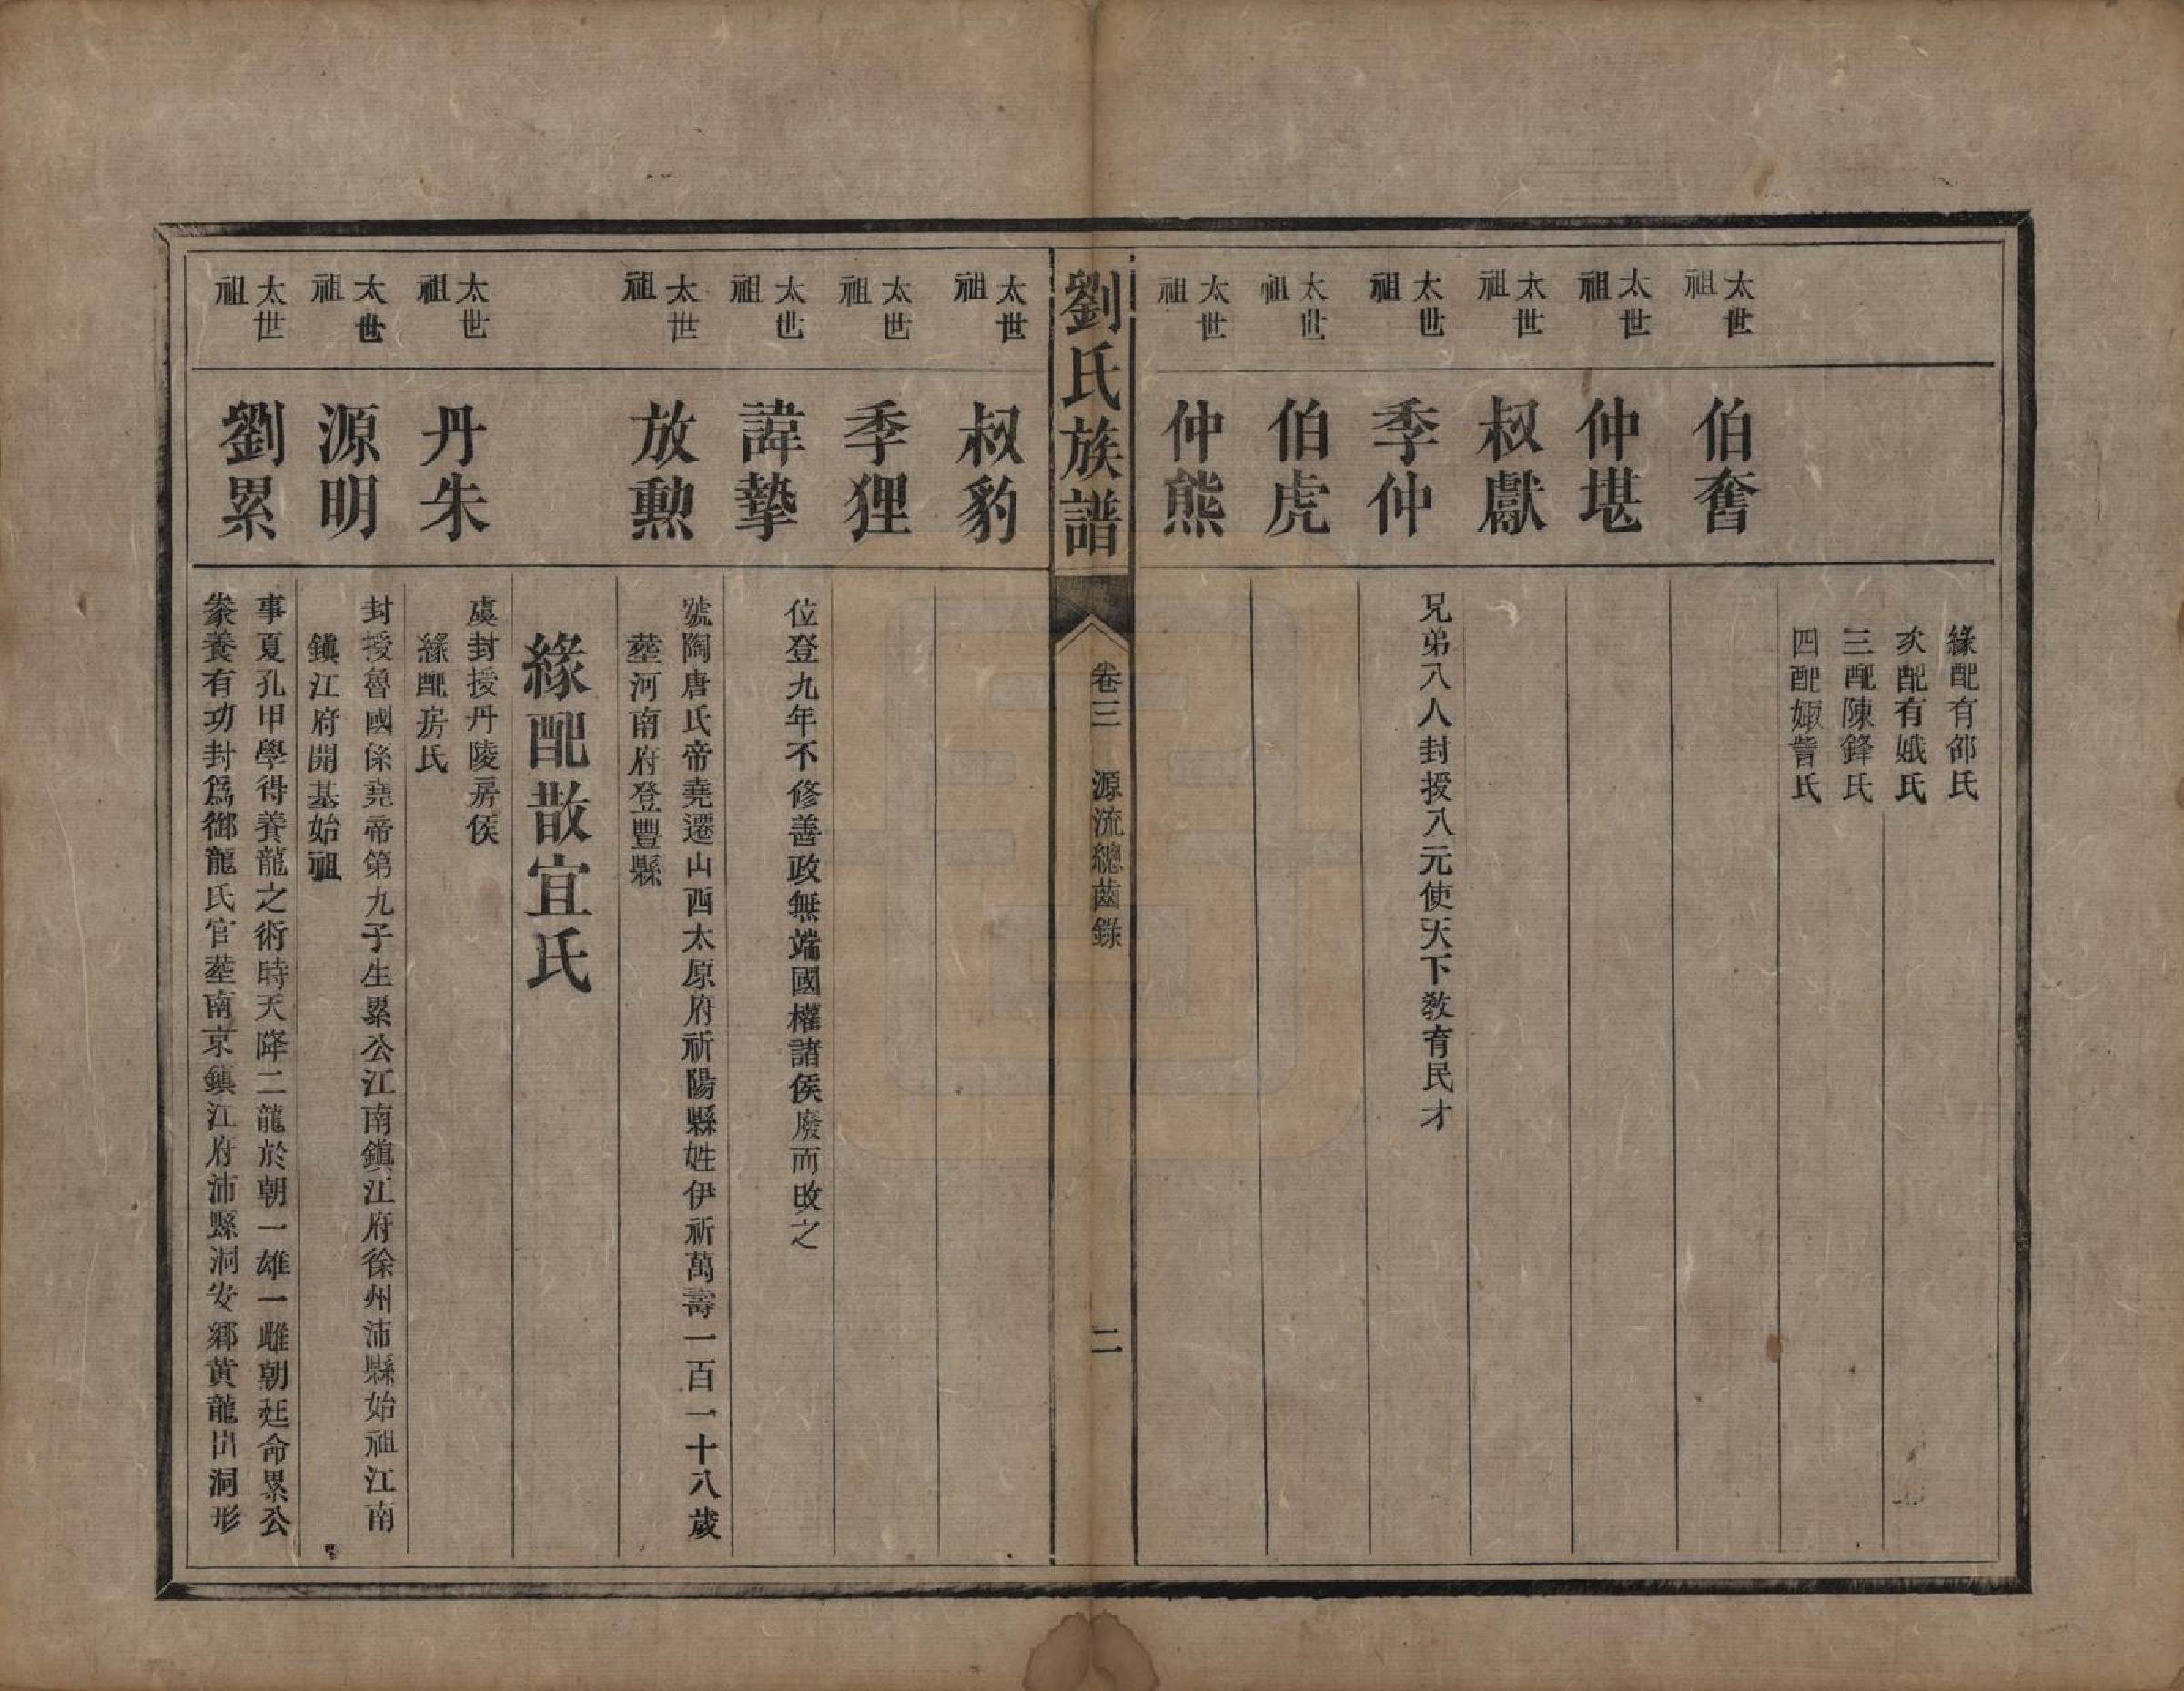 緣配有邰氏
次配有娥氏
三配陳鋒氏
四配娵訾氏
太世祖 伯奮
太世祖 仲堪
太世祖 叔獻
太世祖 季仲
兄弟八人封授八元使天下敎育民才
太世祖 伯虎
太世祖 仲熊
劉氏族譜 卷三 源流總齒錄 二
太世祖 叔豹
太世祖 季狸
太世祖 諱摯
位登九年不修善政無端國權諸侯廢而改之
太世祖 放勲
號陶唐氏帝堯遷山西太原府祈陽縣姓伊祈萬壽一百一十八歲
塟河南府登豐縣
緣配散宜氏
太世祖 丹朱
虞封授丹陵房侯
緣配房氏
太世祖 源明
封授魯國係堯帝第九子生累公江南鎭江府徐州沛縣始祖江南
鎭江府開基始祖
太世祖 劉累
事夏孔甲學得養龍之術時天降二龍於朝一雄一雌朝廷命累公
豢養有功封爲御龍氏官塟南京鎭江府沛縣洞安鄉黃龍出洞形